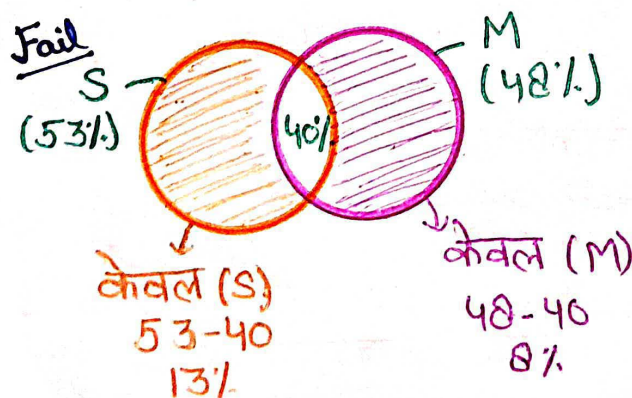 Fail
S
(53%)
M
(48%)
40%
केवल (S)
53-40
13%
केवल (M)
48-40
8%